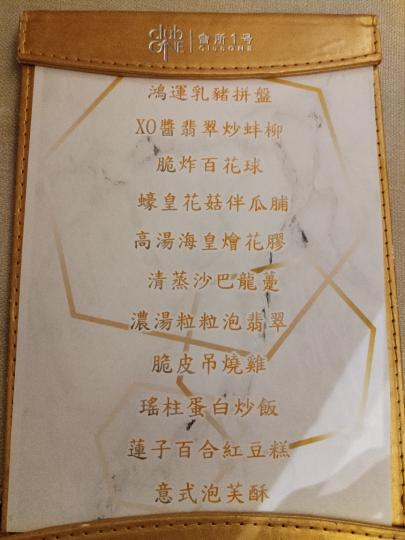 club ONE
會所1号
ClubONE
鴻運乳豬拼盤
XO醬翡翠炒蚌柳
脆炸百花球
蠔皇花菇伴瓜脯
高湯海皇燴花膠
清蒸沙巴龍躉
濃湯粒粒泡翡翠
脆皮吊燒雞
瑤柱蛋白炒飯
蓮子百合紅豆糕
意式泡芙酥